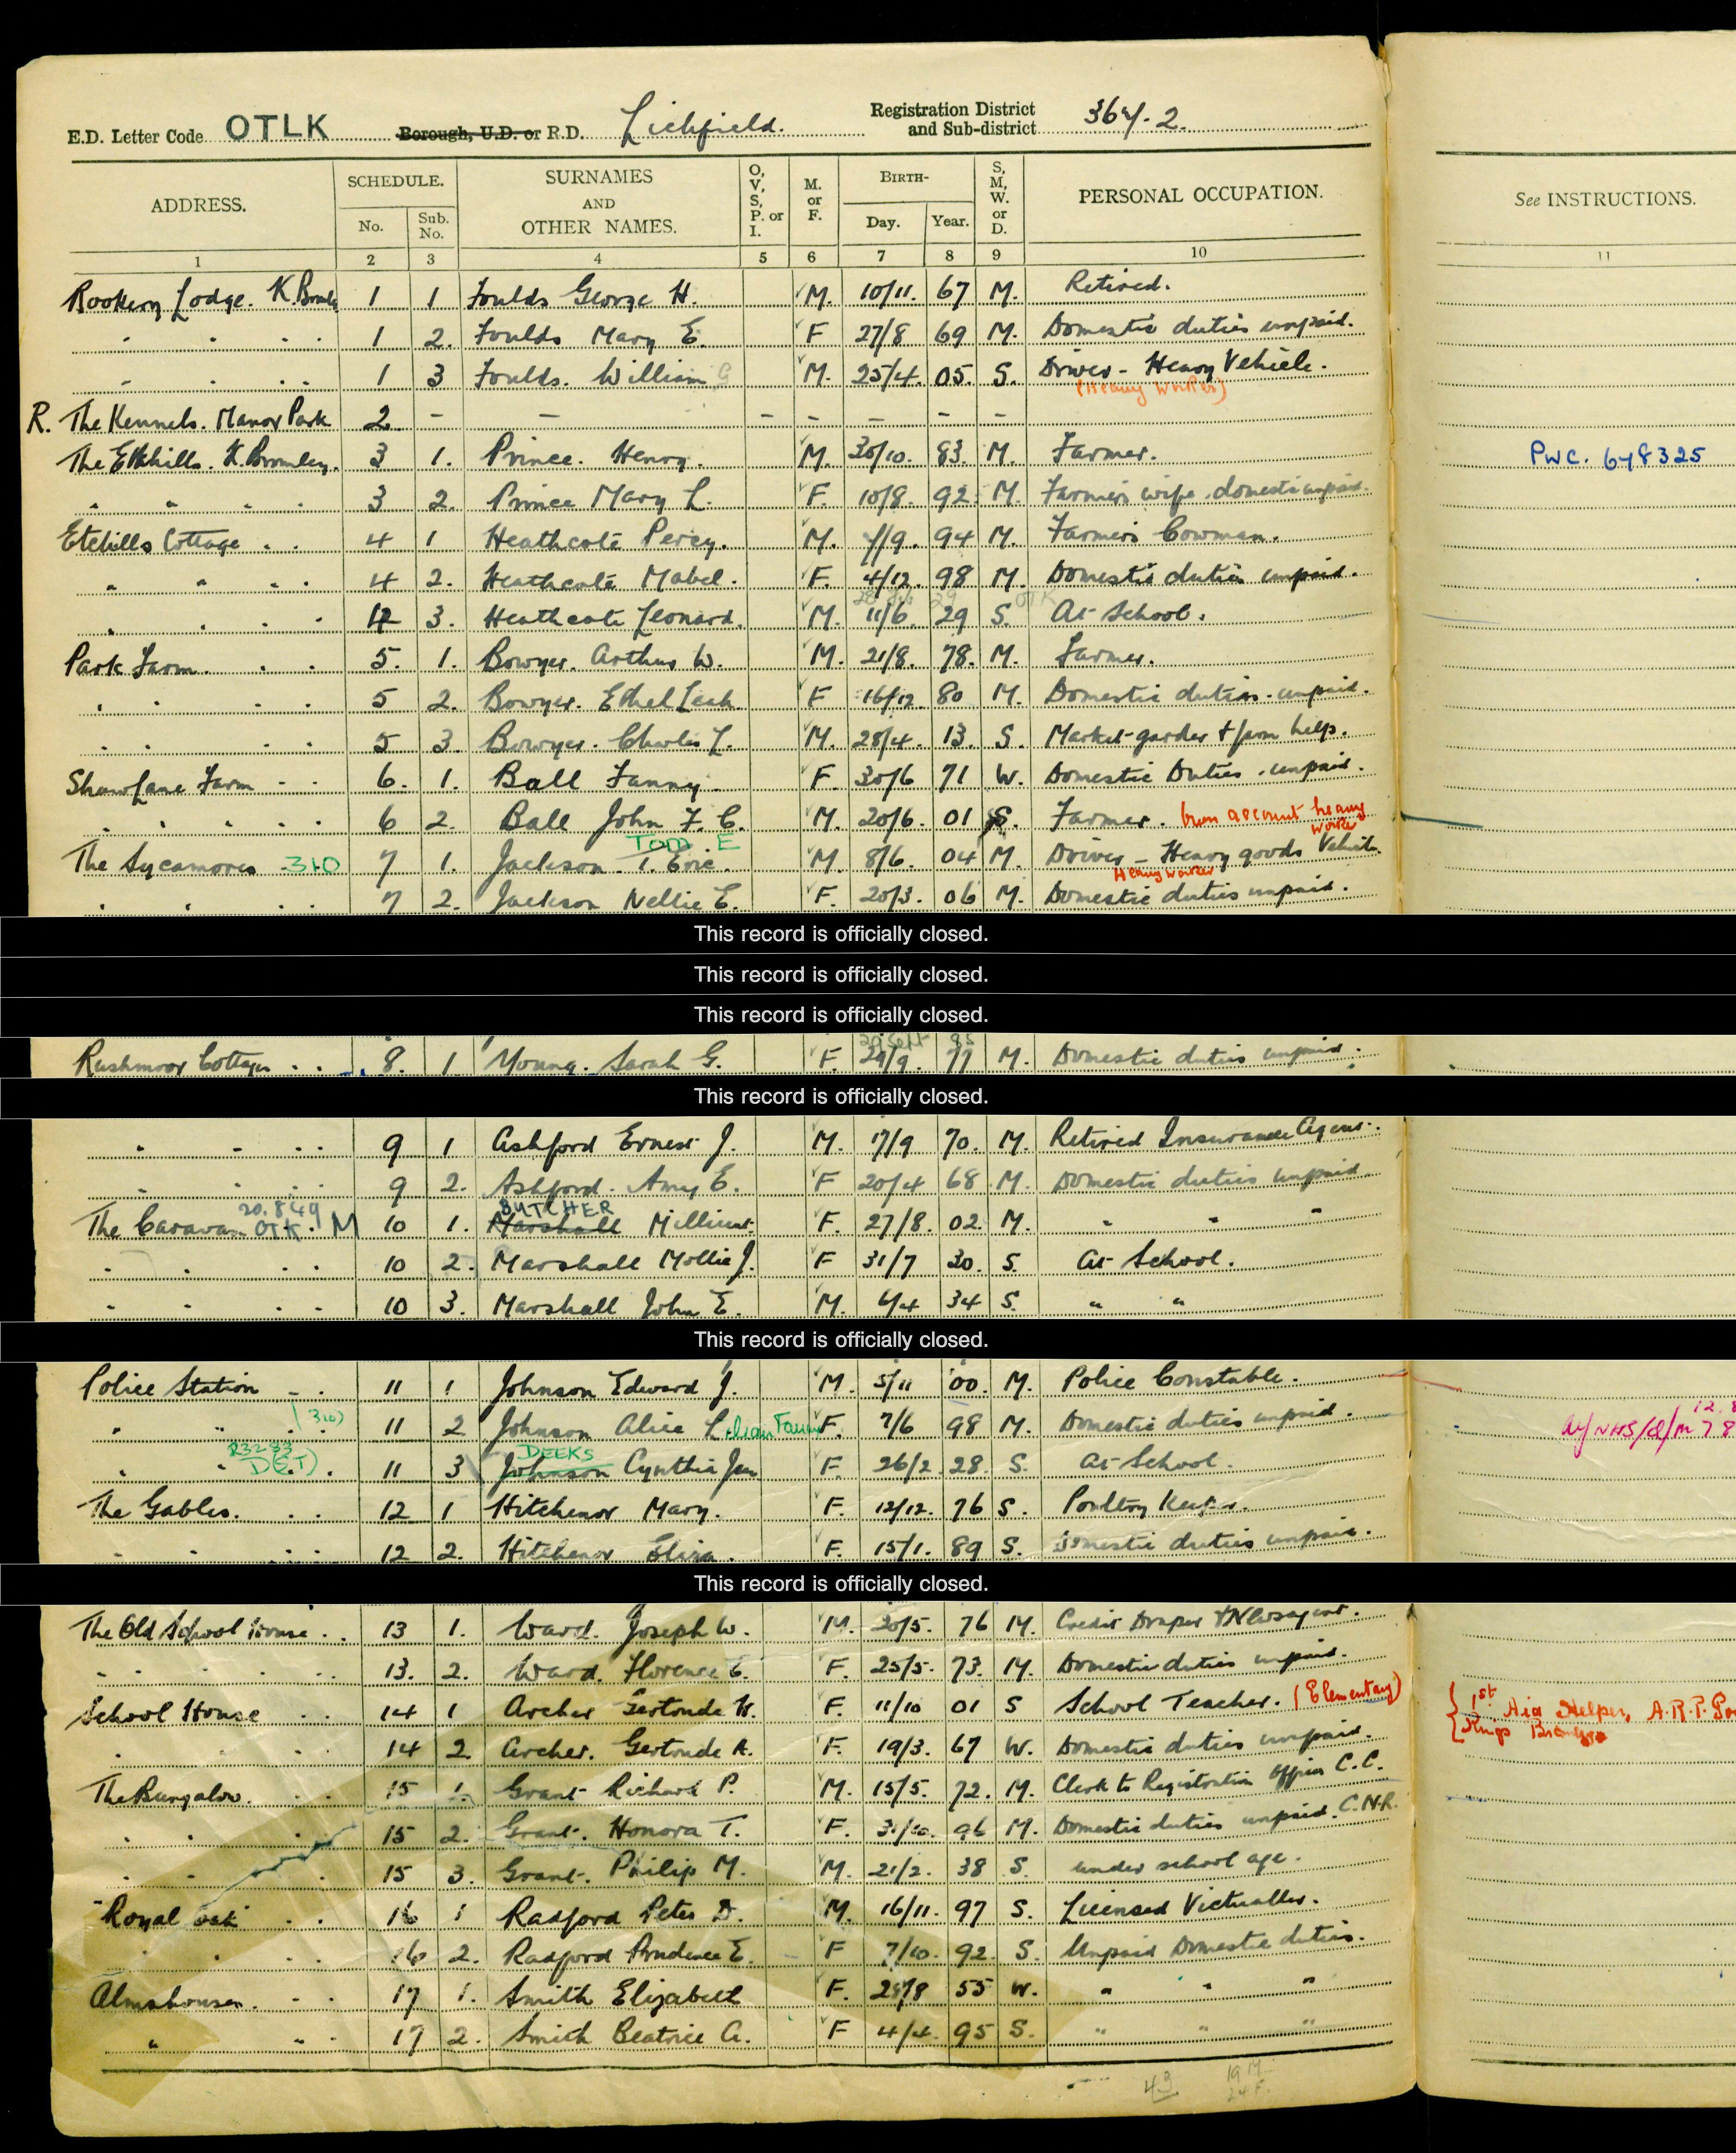 E.D. Letter Code OTLK Borough, U.D. or R.D. Lichfield. Registration District and Sub-district 364/2.
ADDRESS. SCHEDULE. No. Sub. No. SURNAMES AND OTHER NAMES. O, V, S, P. or I. M. or F. BIRTH- Day. Year. S, M, W. or D. PERSONAL OCCUPATION. See INSTRUCTIONS.
1 2 3 4 5 6 7 8 9 10 11
Rookery Lodge. K. Bromley 1 1 Foulds George H. M. 10/11. 67 M. Retired.
" " " " 1 2. Foulds Mary E. F 27/8 69 M. Domestic duties unpaid.
" " " " 1 3 Foulds. William G M. 25/4. 05. S. Driver - Heavy Vehicle.
(Heavy Worker)
R. The Kennels. Manor Park 2. - - - - - - -
The Etchills. K. Bromley. 3 1. Prince. Henry. M. 30/10. 83. M. Farmer. PWC. 648325
" " " " 3 2. Prince Mary L. F. 10/8. 92. M. Farmer's wife. domestic unpaid.
Etchills Cottage . . 4 1 Heathcote Percy. M. 7/9. 94 M. Farmer's Cowman.
" " " " 4 2. Heathcote Mabel. F. 4/12. 98 M. Domestic duties unpaid.
" " " " 4 3. Heathcote Leonard. M. 11/6 29 S. At School.
Park Farm. . . . 5. 1. Bowyer. Arthur W. M. 21/8. 78. M. Farmer.
" " " " 5 2. Bowyer. Ethel Leah. F 16/12. 80 M. Domestic duties. unpaid.
" " " " 5 3. Bowyer. Charles L. M. 28/4. 13. S. Market-garden + farm help.
Shaw Lane Farm - - 6. 1. Ball Fanny. F. 30/6 71 W. Domestic Duties. unpaid.
" " " " 6 2. Ball John F. C. M. 20/6. 01 S. Farmer. own account heavy worker
TOM E
The Sycamores 310 7 1. Jackson. T. Eric. M. 8/6. 04 M. Driver - Heavy goods Vehicle.
Heavy worker
" " " " 7 2. Jackson Nellie E. F. 20/3. 06 M. Domestic duties unpaid.
This record is officially closed.
This record is officially closed.
This record is officially closed.
20 Sept 85
Rushmoor Cottages . . 8. 1 Young. Sarah G. F. 29/9. 77 M. Domestic duties unpaid.
This record is officially closed.
" " " " 9 1 Ashford Ernest J. M. 17/9 70. M. Retired Insurance Agent.
" " " " 9 2. Ashford. Amy E. F 20/4 68 M. Domestic duties unpaid
20.8.49 BUTCHER
The Caravan OTK. M 10 1. Marshall Millicent. F. 27/8. 02. M. " " "
" " " " 10 2. Marshall Mollie J. F 31/7 30. S. At School.
" " " " 10 3. Marshall John E. M. 6/4 34 S. " "
This record is officially closed.
Police Station - . 11 1 Johnson Edward J. M. 5/11 00. M. Police Constable.
" " (310) 11 2 Johnson Alice Lilian Fanny F. 7/6 98 M. Domestic duties unpaid.
R3283 D(ET) DEEKS
" " 11 3 Johnson Cynthia Jean F. 26/2. 28. S. At School.
The Gables. . . . 12 1 Hitchenor Mary. F. 12/12. 76 S. Poultry Keeper.
" " " " 12 2. Hitchenor Eliza. F. 15/1. 89 S. Domestic duties unpaid.
This record is officially closed.
The Old School House . . 13 1. Ward. Joseph W. M. 20/5. 76 M. Credit Draper + Newsagent.
" " " " 13. 2. Ward. Florence E. F. 25/5. 73. M. Domestic duties unpaid.
School House . . 14 1 Archer Gertrude H. F. 11/10 01 S School Teacher. (Elementary) 1st Aid Helper, A.R.P. Kings Bromley
" " " " 14 2. Archer. Gertrude A. F. 19/3. 67 W. Domestic duties unpaid.
The Bungalow. . . 15 1. Grant Richard P. M. 15/5. 72. M. Clerk to Registration Officer C.C.
" " " " 15 2. Grant. Honora T. F. 31/10. 96 M. Domestic duties unpaid. C.N.R.
" " " " 15 3. Grant. Philip M. M. 21/2. 38 S. under school age.
"Royal Oak" . . 16 1 Radford Peter D. M. 16/11. 97 S. Licensed Victualler.
" " " " 16 2. Radford Prudence E. F 7/10. 92. S. Unpaid Domestic duties.
Almshouses. - . 17 1. Smith Elizabeth F. 29/8 55 W. " " "
" " " 17 2. Smith Beatrice A. F 4/4. 95 S. " " "
43 19 M. 24 F.